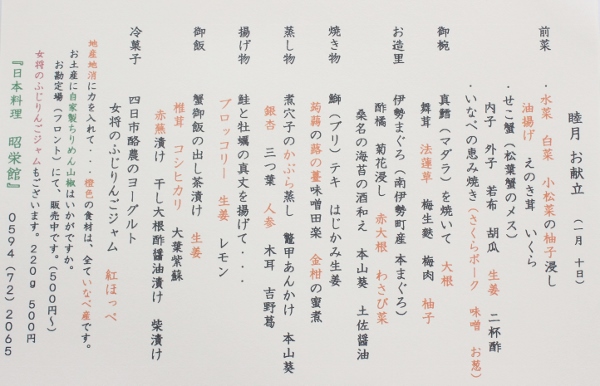 睦月 お献立 (一月 十日)
前菜 ・水菜 白菜 小松菜の柚子浸し
油揚げ えのき茸 いくら
・せこ蟹(松葉蟹のメス)
内子 外子 若布 胡瓜 生姜 二杯酢
・いなべの恵み焼き(さくらポーク 味噌 お葱)
御椀 真鱈(マダラ)を焼いて 大根
舞茸 法蓮草 梅生麩 梅肉 柚子
お造里 伊勢まぐろ(南伊勢町産 本まぐろ)
酢橘 菊花浸し 赤大根 わさび菜
桑名の海苔の酒和え 本山葵 土佐醤油
焼き物 鰤(ブリ)テキ はじかみ生姜
蒟蒻の蕗の薹味噌田楽 金柑の蜜煮
蒸し物 煮穴子のかぶら蒸し 鼈甲あんかけ 本山葵
銀杏 三つ葉 人参 木耳 吉野葛
揚げ物 鮭と牡蠣の真丈を揚げて・・・
ブロッコリー 生姜 レモン
御飯 蟹御飯の出し茶漬け 生姜
椎茸 コシヒカリ 大葉紫蘇
赤蕪漬け 干し大根酢醤油漬け 柴漬け
冷菓子 四日市酪農のヨーグルト
女将のふじりんごジャム 紅ほっぺ
地産地消に力を入れて・・橙色の食材は、全ていなべ産です。
お土産に自家製ちりめん山椒はいかがですか。
お勘定場(フロント)にて、販売中です。(500円~)
女将のふじりんごジャムもございます。220g 500円
『日本料理 昭栄館』 0594(72)2065